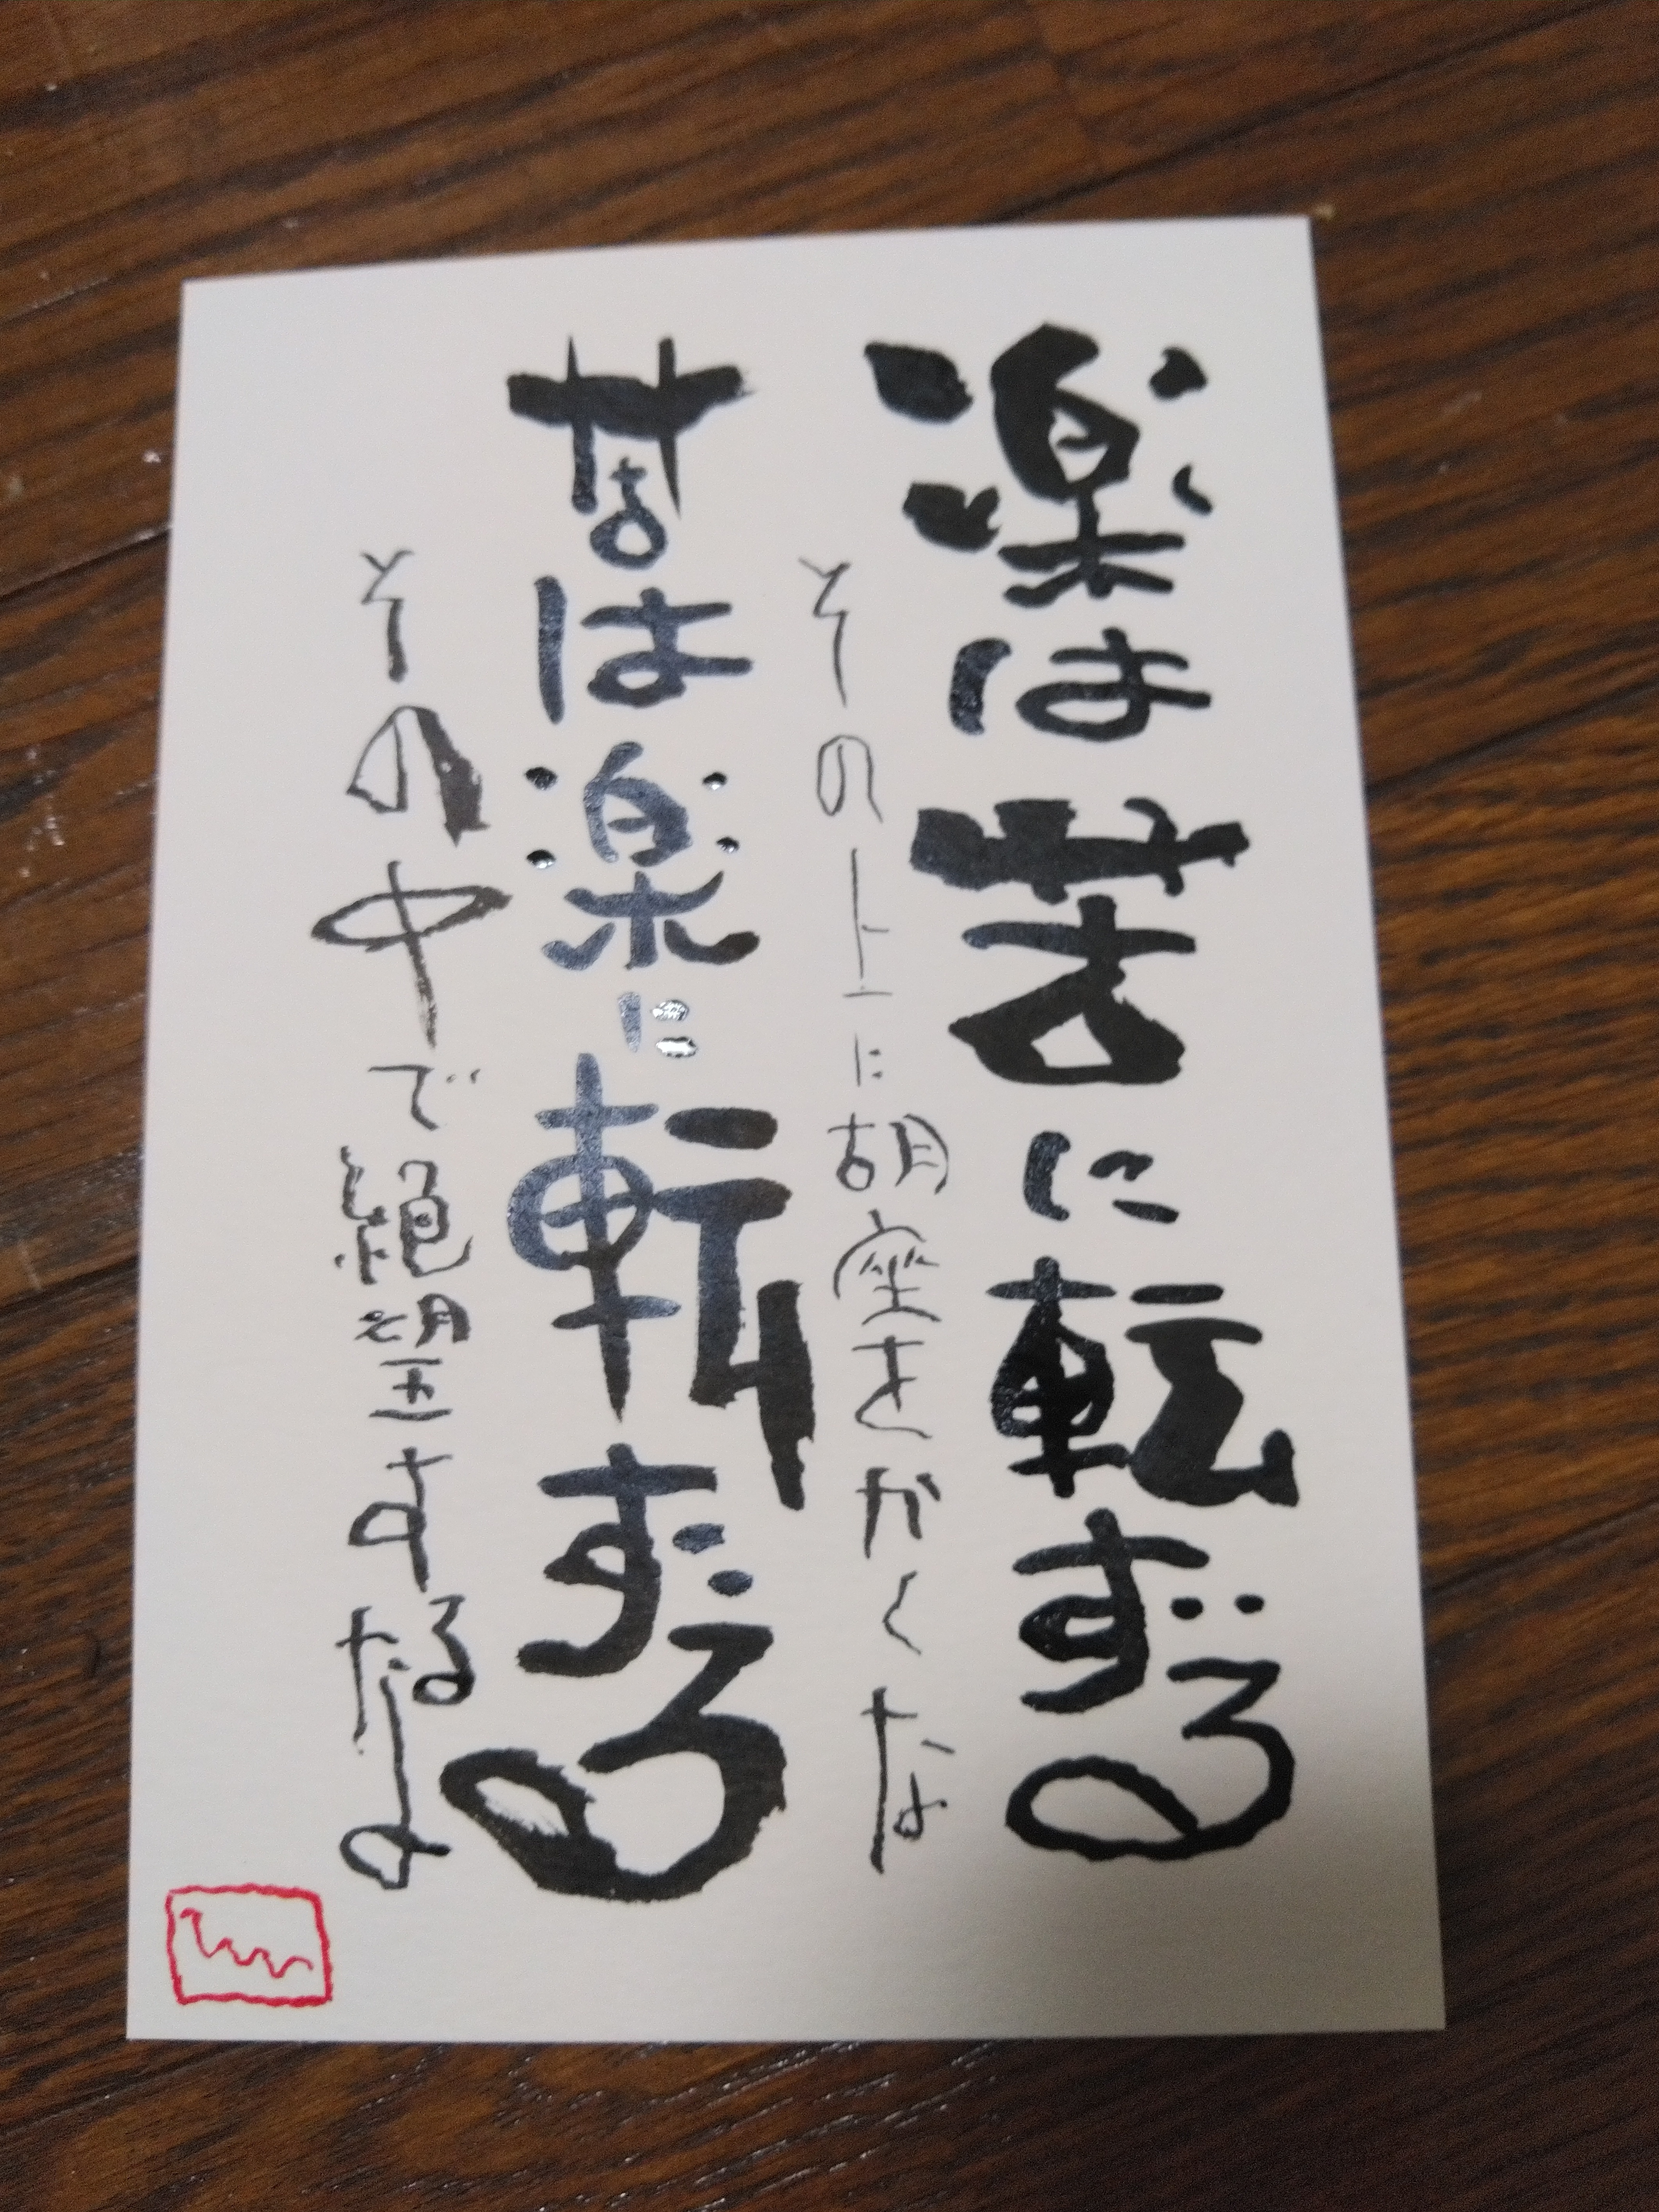 楽は苦に転ずる
その上に胡座をかくな
苦は楽に転ずる
その中で絶望するなよ